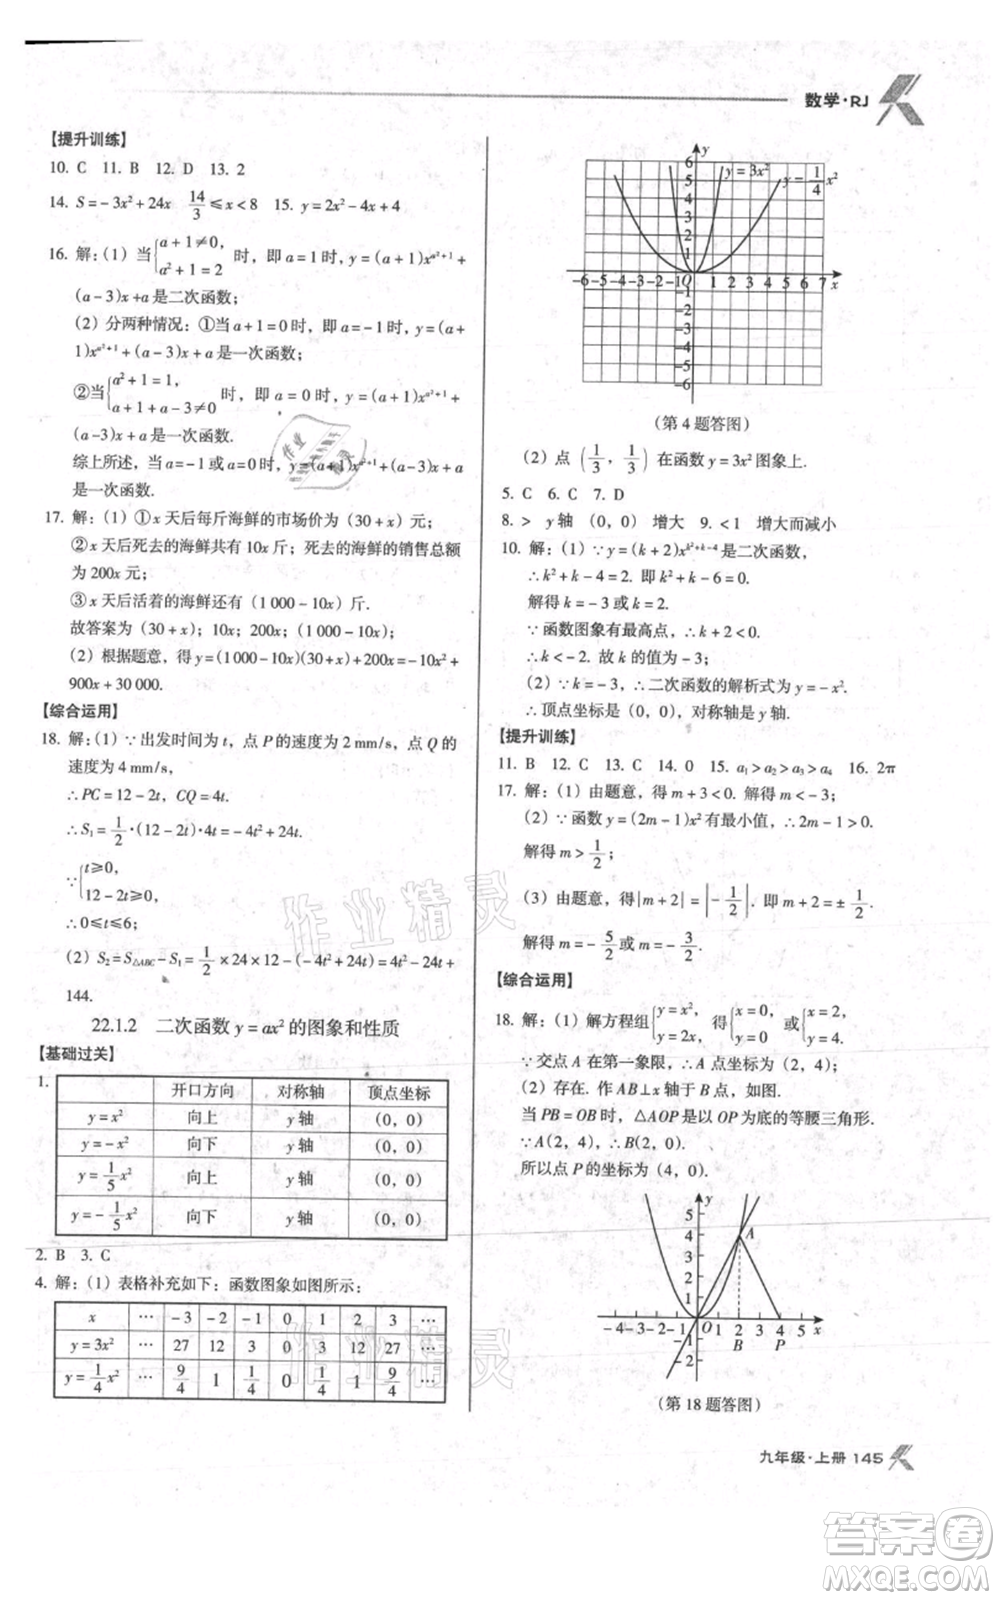 数学·RJ
【提升训练】
10. C  11. B  12. D  13. 2
14. S=-3x²+24x  14/3≤x<8  15. y=2x²-4x+4
16. 解:(1)当{a+1≠0, a²+1=2 时,即a=1时,y=(a+1)x^(a²+1)+
(a-3)x+a是二次函数;
(2)分两种情况:①当a+1=0时,即a=-1时,y=(a+
1)x^(a²+1)+(a-3)x+a是一次函数;
②当{a²+1=1, a+1+a-3≠0 时,即a=0时,y=(a+1)x^(a²+1)+
(a-3)x+a是一次函数.
综上所述,当a=-1或a=0时,y=(a+1)x^(a²+1)+(a-3)x+a是
一次函数.
17. 解:(1)①x天后每斤海鲜的市场价为(30+x)元;
②x天后死去的海鲜共有10x斤;死去的海鲜的销售总额
为200x元;
③x天后活着的海鲜还有(1 000-10x)斤.
故答案为(30+x);10x;200x;(1 000-10x);
(2)根据题意,得y=(1 000-10x)(30+x)+200x=-10x²+
900x+30 000.
【综合运用】
18. 解:(1)∵出发时间为t,点P的速度为2 mm/s,点Q的
速度为4 mm/s,
∴PC=12-2t,CQ=4t.
∴S₁=1/2·(12-2t)·4t=-4t²+24t.
∵{t≥0, 12-2t≥0,
∴0≤t≤6;
(2)S₂=S△ABC-S₁=1/2×24×12-(-4t²+24t)=4t²-24t+
144.
22.1.2 二次函数y=ax²的图象和性质
【基础过关】
1.
开口方向 对称轴 顶点坐标
y=x² 向上 y轴 (0,0)
y=-x² 向下 y轴 (0,0)
y=1/5x² 向上 y轴 (0,0)
y=-1/5x² 向下 y轴 (0,0)
2. B  3. C
4. 解:(1)表格补充如下:函数图象如图所示:
x … -3 -2 -1 0 1 2 3 …
y=3x² … 27 12 3 0 3 12 27 …
y=1/4x² … 9/4 1 1/4 0 1/4 1 9/4 …
y
6 y=3x² y=1/4x²
5
4
3
2
1
-6-5-4-3-2-1O 1 2 3 4 5 6 7 x
-1
-2
-3
-4
-5
-6
(第4题答图)
(2)点(1/3,1/3)在函数y=3x²图象上.
5. C  6. C  7. D
8. >  y轴  (0,0)  增大  9. <1  增大而减小
10. 解:(1)∵y=(k+2)x^(k²+k-4)是二次函数,
∴k²+k-4=2. 即k²+k-6=0.
解得k=-3或k=2.
∵函数图象有最高点,∴k+2<0.
∴k<-2. 故k的值为-3;
(2)∵k=-3,∴二次函数的解析式为y=-x².
∴顶点坐标是(0,0),对称轴是y轴.
【提升训练】
11. B  12. C  13. C  14. 0  15. a₁>a₂>a₃>a₄  16. 2π
17. 解:(1)由题意,得m+3<0. 解得m<-3;
(2)∵函数y=(2m-1)x²有最小值,∴2m-1>0.
解得m>1/2;
(3)由题意,得|m+2|=|-1/2|,∴m+2=±1/2.
解得m=-5/2或m=-3/2.
【综合运用】
18. 解:(1)解方程组{y=x², y=2x, 得{x=0, y=0 或{x=2, y=4.
∵交点A在第一象限,∴A点坐标为(2,4);
(2)存在. 作AB⊥x轴于B点,如图.
当PB=OB时,△AOP是以OP为底的等腰三角形.
∵A(2,4),∴B(2,0).
所以点P的坐标为(4,0).
y
5
4 A
3
2
1
-4-3-2-1 O 1 2 3 4 5 x
B P
-1
-2
(第18题答图)
九年级·上册 145
作业精灵
作业精灵
作业
答案圈
MXQE.COM